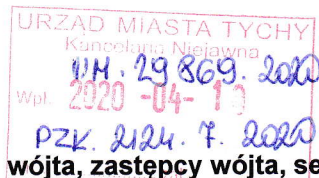 URZĄD MIASTA TYCHY
Kancelaria Niejawna
UM. 29869. 2020
Wpł. 2020 -04- 1
PZK. 2124. 7. 2020
wójta, zastępcy wójta, se